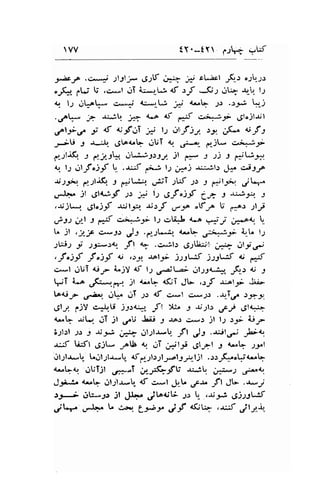 کتاب چهارم ۴۲۱-۴۲۰ ۱۷۷
درباره دیگر اعضاء نیز چنین کاری سزاوار نیست. هرعضو
را باید چنان رنگ کرد که شایستهٔ آن است، تا تمام پیکره
زیبا شود. در جامعه نیز شایسته نیست سپاهیان را به
اندازه‌ای خوشبخت کنیم که همه چیز باشند جز سپاهی.
وگرنه ممکن بود برزگران را نیز آن‌گونه که تو می‌خواهی
خوشبخت سازیم یعنی به آنان جامه‌های بلند و فاخر
بپوشانیم و زر و سیم از بر‌ودوششان بیاویزیم و بگذاریم
هروقت میل داشتند زمین را بکارند. یا کوزه‌گران را به
مهمانی بخوانیم و در کنار آتش بنشانیم و بگذاریم بخورند
و بنوشند و چرخ کوزه‌گری را نیز در گوشه‌ای از مجلس
قرار دهیم تا هرگاه هوس کردند بتوانند کوزه‌ای بسازند،
یا به‌همین ترتیب همه طبقات را خوشبخت کنیم و این روش
را مایهٔ خوشبختی جامعه بشماریم. ولی دوست عزیز، از ما
نمی‌توان چنین انتظاری داشت. چه اگر به‌دستور تو رفتار
کنیم نه کشاورز کشاورز خواهد بود، نه کوزه‌گر کوزه‌گر،
و نه دیگر پیشه‌وران خصائصی را که لازمهٔ حرفه آنان است
حفظ خواهند کرد، حال آنکه جامعه از بهم‌بستگی همهٔ آنها
بوجود می‌آید. درست است که در آن میان بعضی حرفه‌ها
جنبه‌ای فرعی دارند و مثلا اگر پینه‌دوز قابلیت لازم برای
حرفهٔ خود را از دست دهد و فقط نامی از آن بماند جامعه
به‌خطر نمی‌افتد. ولی اگر پاسداران چنین شوند و در ادارهٔ
امور جامعه و اجرای قوانین آن به ظاهر سازی اکتفا کنند
جامعه‌تباه‌میگردد. ازاینرو‌اصرارداریم‌که پاسداران‌ما پاسداران
به‌معنی راستین باشند تا‌کوچکترین آسیبی ازآنان به‌جامعه
نرسد. حال اگر مدعی مایل است که پاسداران جامعه مشغول
کشاورزی شوند، یا در خانه‌هائی مجلل از دوستان خود
پذیرائی کنند، چنانکه گوئی موضوع بحث ما مجلس مهمانی